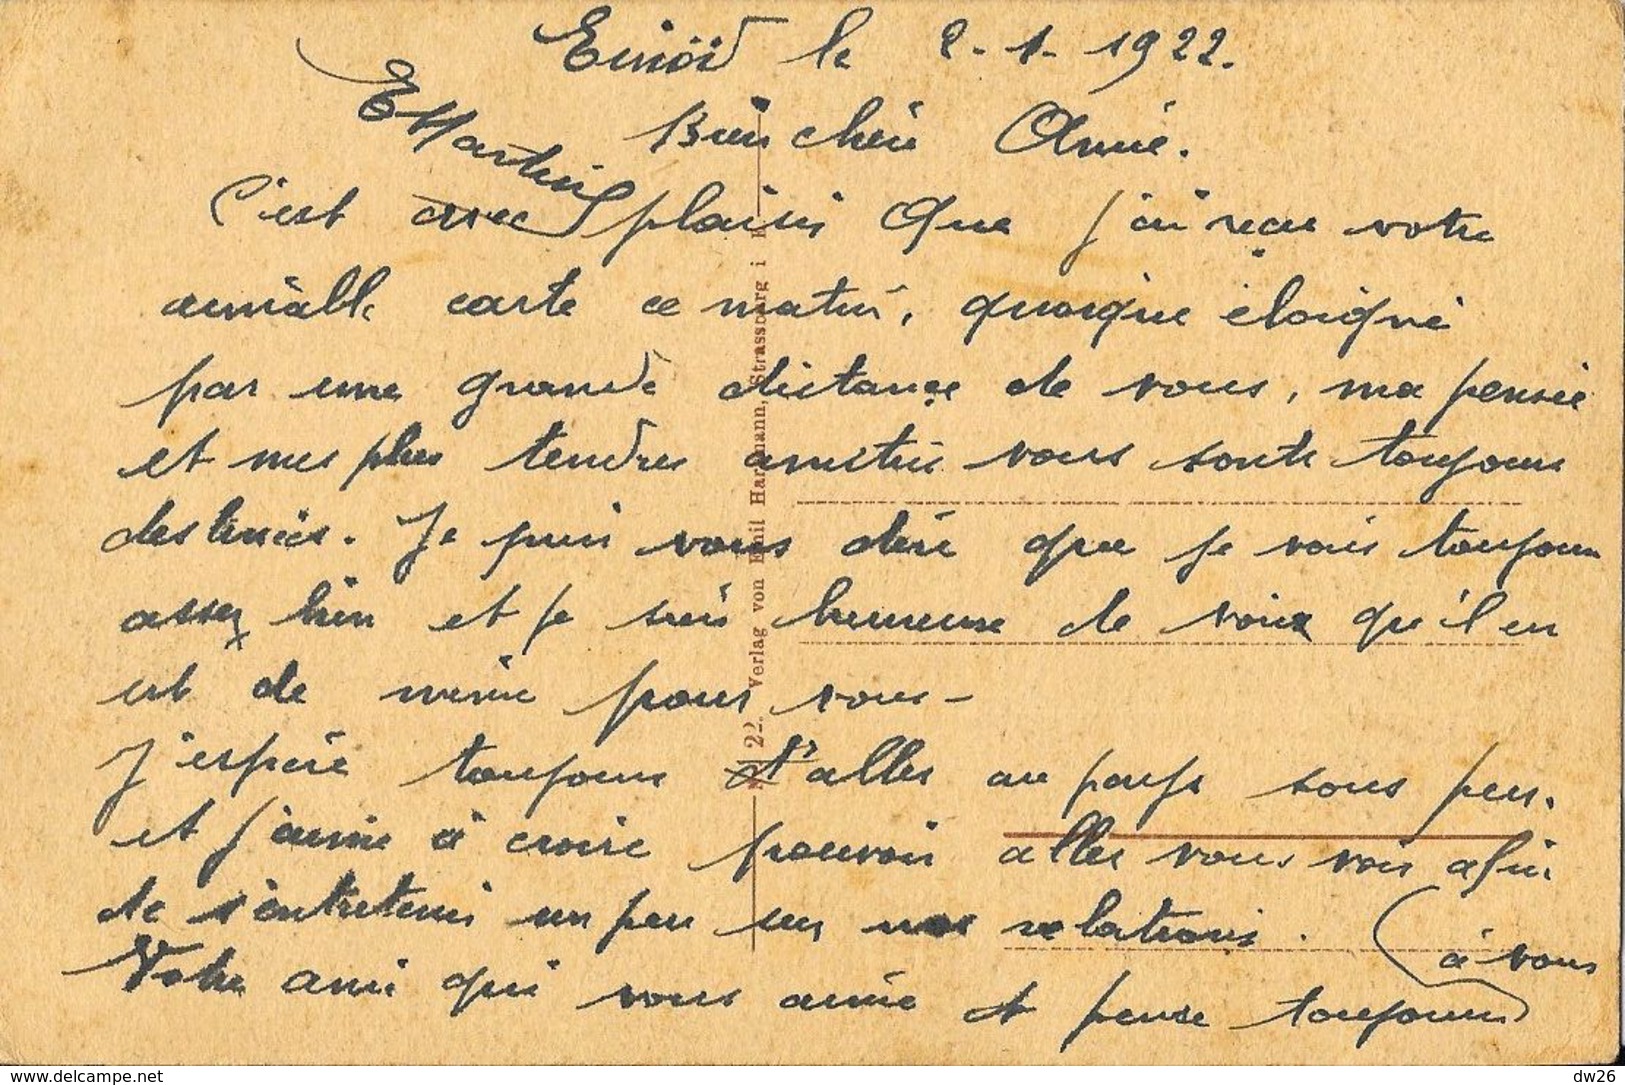 Einöd le 2-1-1922.
EMartin
Bien chère Amie.
C'est avec plaisir Que j'ai reçu votre
aimable carte ce matin, quoique éloigné
par une grande distance de vous, ma pensée
et mes plus tendres amitié vous sonts toujours
destinées. Je puis vous dire que je vais toujours
assez bien et je suis heureuse de voir qu'il en
est de même pour vous-
J'espère toujours d'aller au pays sous peu.
et j'aime à croire pouvoir aller vous voir afin
de s'entretenir un peu sur nos relations.
Votre ami qui vous aime et pense toujours
à vous
22. Verlag von Emil Hartmann, Strassburg i
dw26
www.delcampe.net